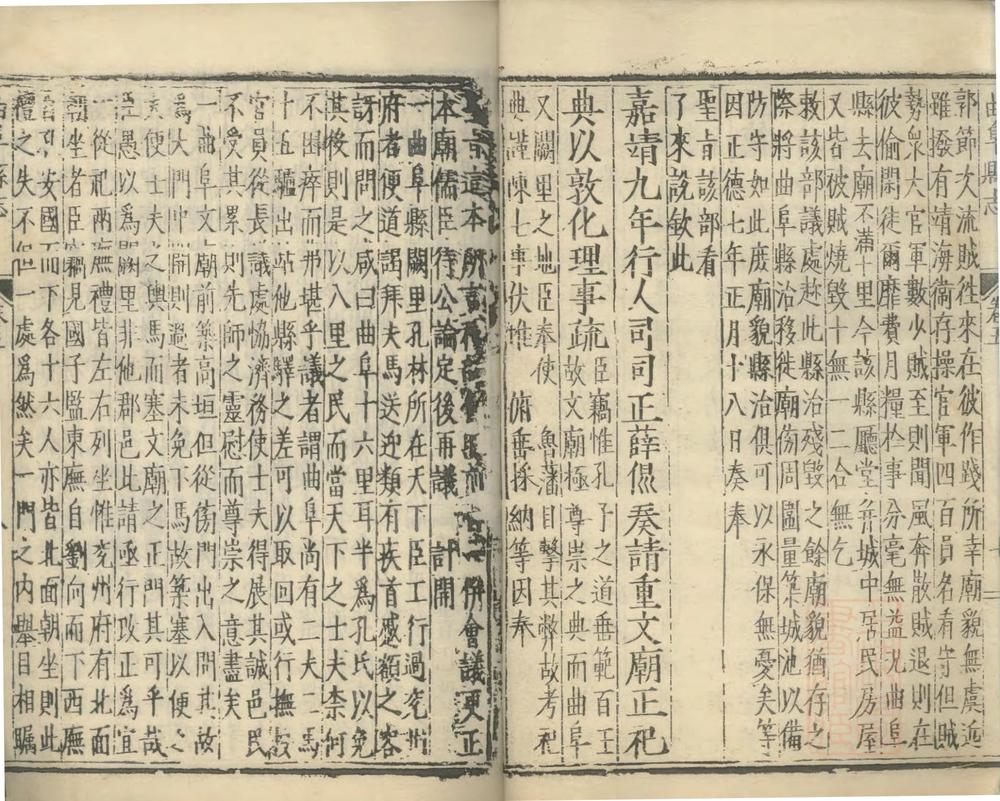 郭節次流賊徃來在彼作踐所幸廟貌無虞近
雖撥有靖海衛存操官軍四百員名看守但賊
勢衆大官軍數少賊至則聞風奔散賊退則在
彼偷閑徒爾靡費月糧於事分毫無益况曲阜
縣去廟不滿十里今該縣廳堂并城中居民房屋
又皆被賊燒毀十無一二合無乞
敕該部議處趂此縣治殘毀之餘廟貌猶存之
際將曲阜縣治移徙廟傍周圍量築城池以備
防守如此庶廟貌縣治俱可以永保無憂矣等
因正德七年正月十八日奏奉
聖旨該部看
了來說欽此
嘉靖九年行人司司正薛侃奏請重文廟正祀
典以敦化理事疏臣竊惟孔子之道垂範百王
故文廟極尊崇之典而曲阜
又闕里之地臣奉使魯藩目擊其弊故考祀
典謹陳七事伏惟俯垂採納等因奉
本所言
併會議更正
本廟儒臣待公論定後再議計開
一曲阜縣闕里孔林所在天下臣工行過兖州
府者便道謁拜夫馬送迎類有疾首蹙額之容
訝而問之咸曰曲阜十六里耳半爲孔氏以免
其後則是以八里之民而當天下之士夫柰何
不困瘁而弗堪乎議者謂曲阜尚有二夫二馬
十五驢出站他縣驛之差可以取回或行撫按
官員從長議處恊濟務使士夫得展其誠邑民
不受其累則先師之靈慰而尊崇之意盡矣
一曲阜文廟前築高垣但從傍門出入問其故
爲大門中開則過者未免下馬故築塞以便
夫便士夫之輿馬而塞文廟之正門其可乎哉
臣愚以爲闕里非他郡邑此請亟行改正爲宜
一從祀兩廡禮皆左右列坐惟兖州府有北面
朝坐者臣竊見國子監東廡自劉向而下西廡
自孔安國而下各十六人亦皆北面朝坐則此
禮之失不但一處爲然矣一門之内舉目相矚